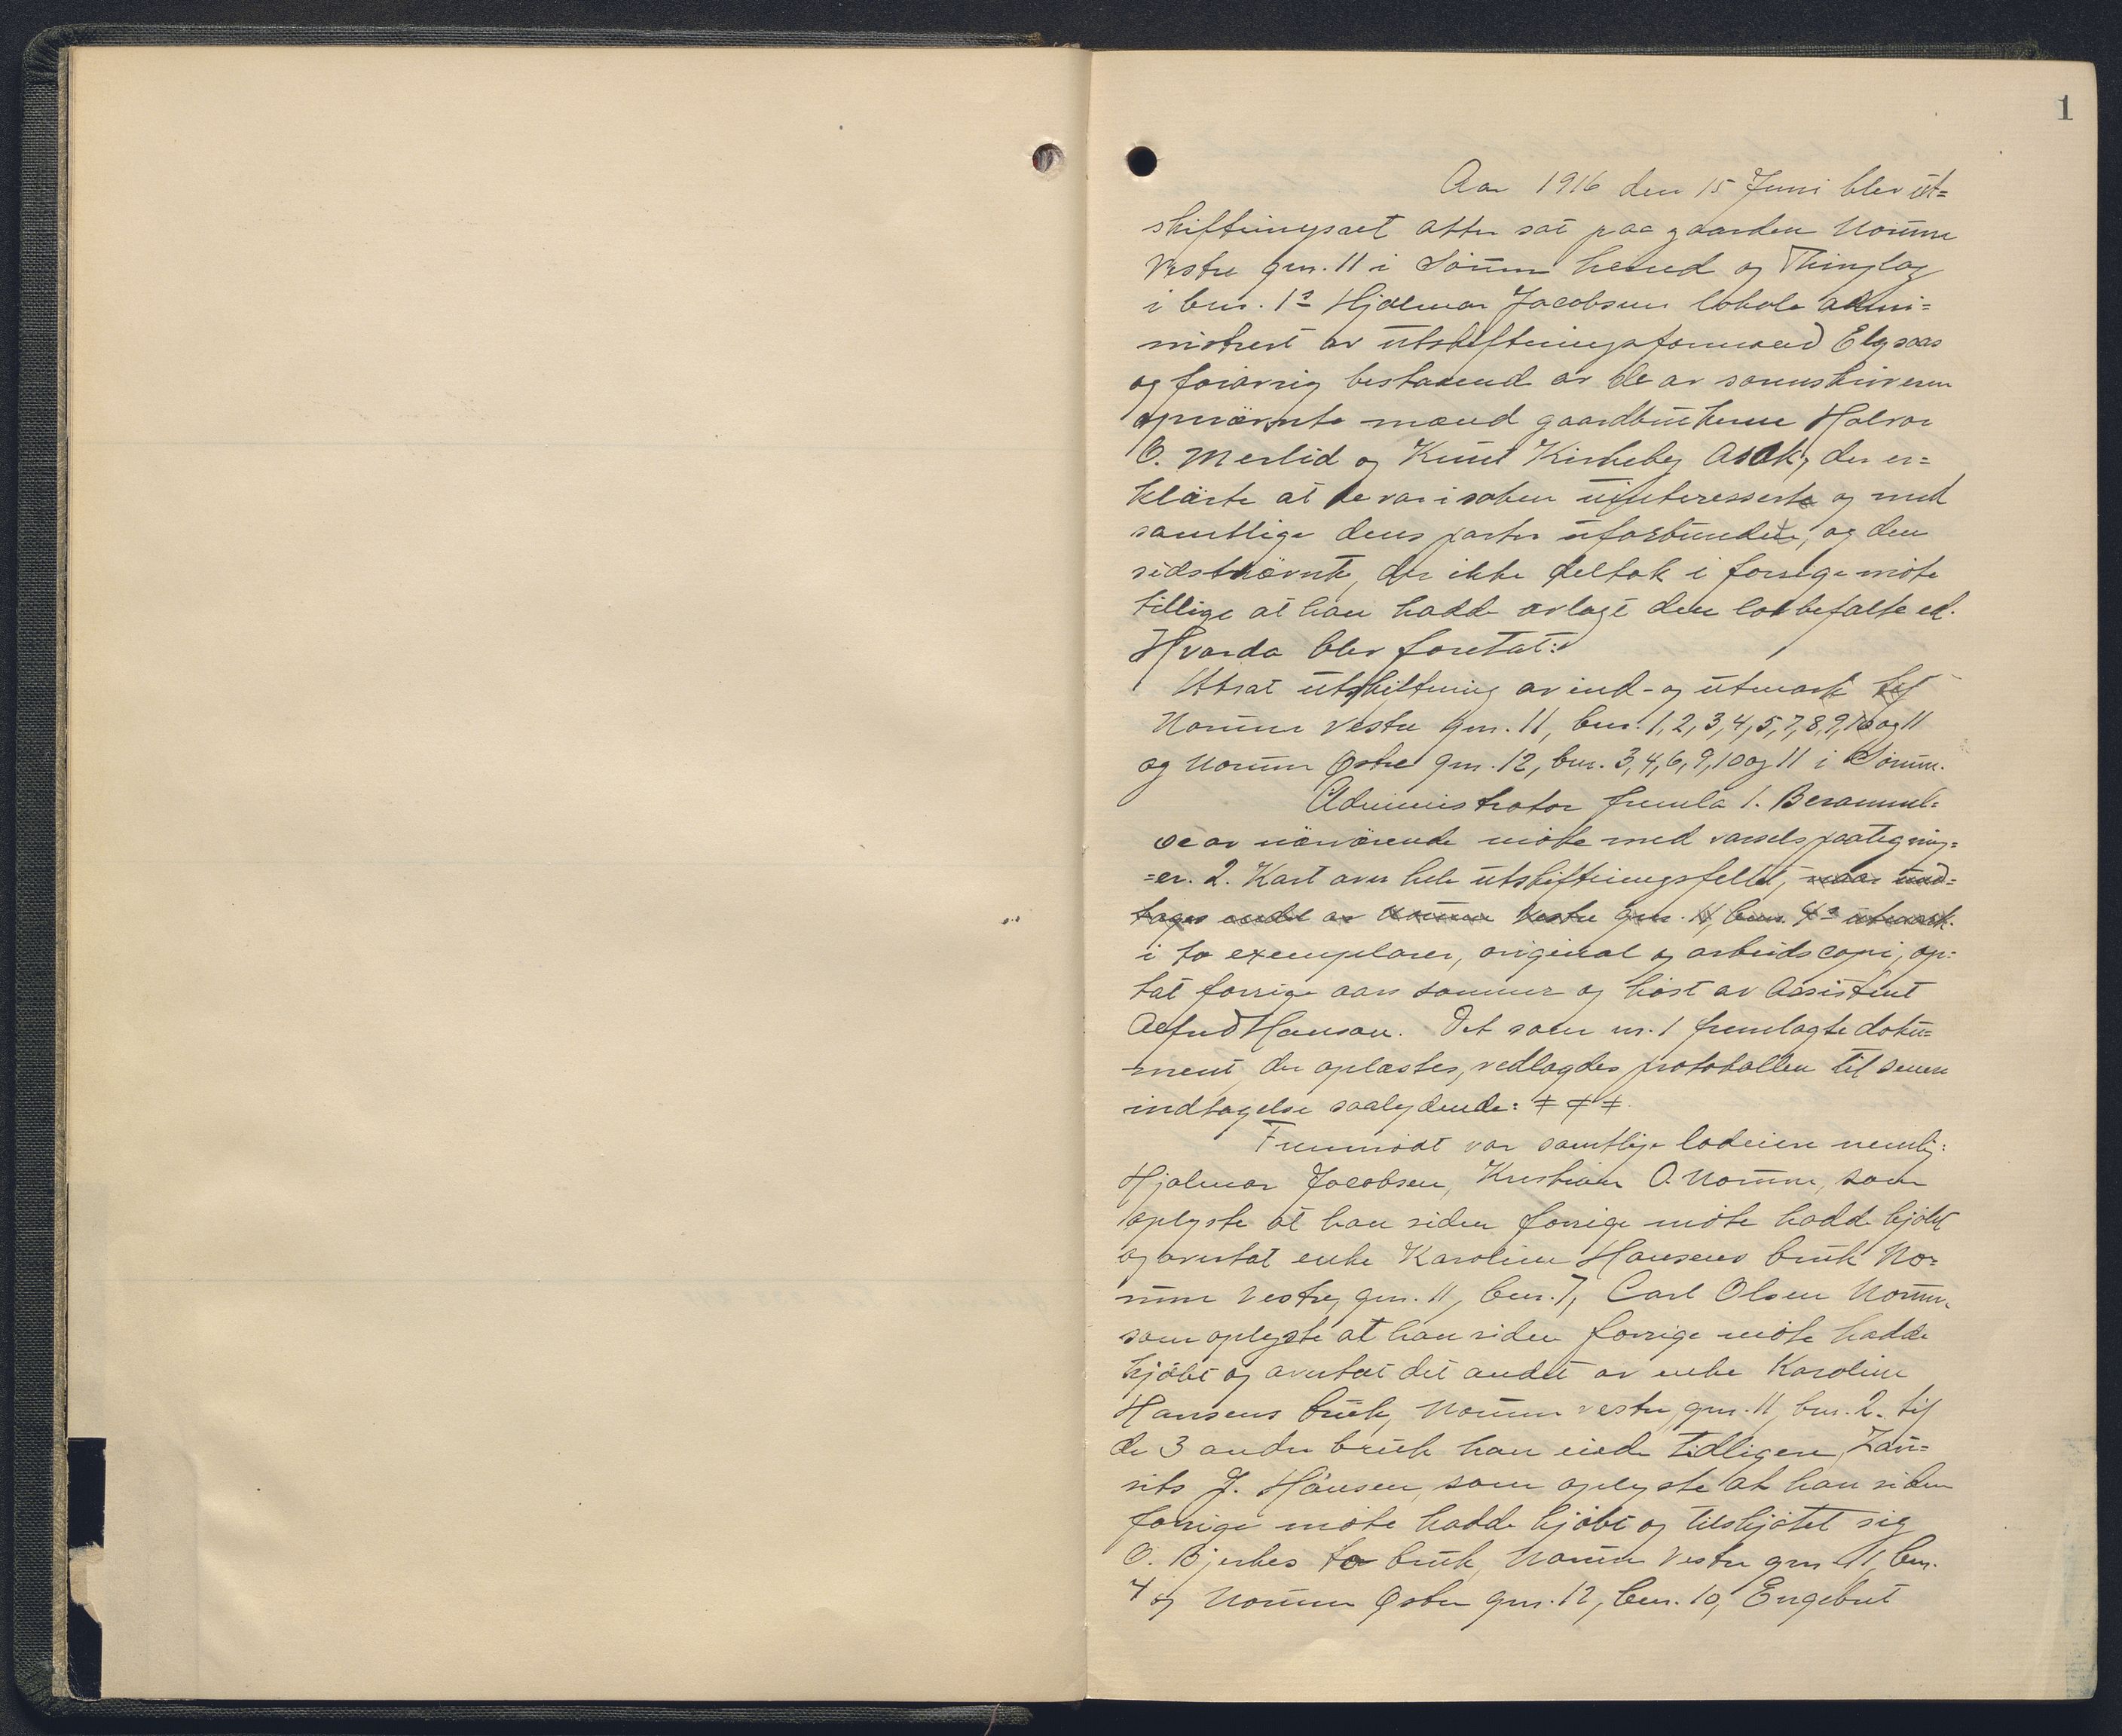 1
Aar 1916 den 15 Juni blev ut=
skiftningsret atter sat paa gaarden Nomme
Vestre gnr. 11 i Sørum herred og Thinglag
i bnr. 1ª Hjalmar Jacobsens lokale admi=
nistrert av utskiftningsformand Elgsaas
og forøvrig bestaaend av de av sorenskriveren
opnævnte mænd gaardbrukerne Halvor
O. Merlid og Knut Kirkeby Asak, der er=
klärte at de var i saken uinteresserte og med
samtlige dens parter uforbundet, og den
sidstnævnte, der ikke deltok i forrige møte
tillige at han hadde avlagt den lovbefalte ed.
Hvorda blev foretat:
Utsat utskiftning av ind- og utmark til
Nomme vestre gnr. 11, bnr. 1, 2, 3, 4, 5, 7, 8, 9, 10 og 11
og Nomme Østre gnr. 12, bnr. 3, 4, 6, 9, 10 og 11 i Sørum.
Administrator fremla 1. Berammel=
se av närvärende møte med varselspaategning=
=er. 2. Kart over hele utskiftningsfeltet, naar und=
tages endel av Nomme Vestre gnr. 11, bnr. 4ª utmark.
i to exemplarer, original og arbeidscopi, op=
tat forrige aars sommer og høst av Assistent
Alfred Hansen. Det som nr. 1 fremlagte doku=
ment der oplæstes, vedlagdes protokollen til senere
indtagelse saalydende: ≠ ≠ ≠
Fremmødt var samtlige lodeiere nemlig:
Hjalmar Jacobsen, Kristian O. Nomme, som
oplyste at han siden forrige møte hadde kjöbt
og overtat enke Karoline Hansens bruk No=
mme Vestre, gnr. 11, bnr. 7, Carl Olsen Nomme
som oplyste at han siden forrige møte hadde
kjöbt og overtat det andet av enke Karoline
Hansens bruk, Nomme vestre, gnr. 11, bnr. 2. til
de 3 andre bruk han eiede tidligere, Lau=
rits J. Hansen, som oplyste at han siden
forrige møte hadde kjöbt og tilskjøtet sig
O. Bjerkes to bruk, Nomme Vestre gnr. 11, bnr.
4 og Nomme Østre gnr. 12, bnr. 10, Engebret